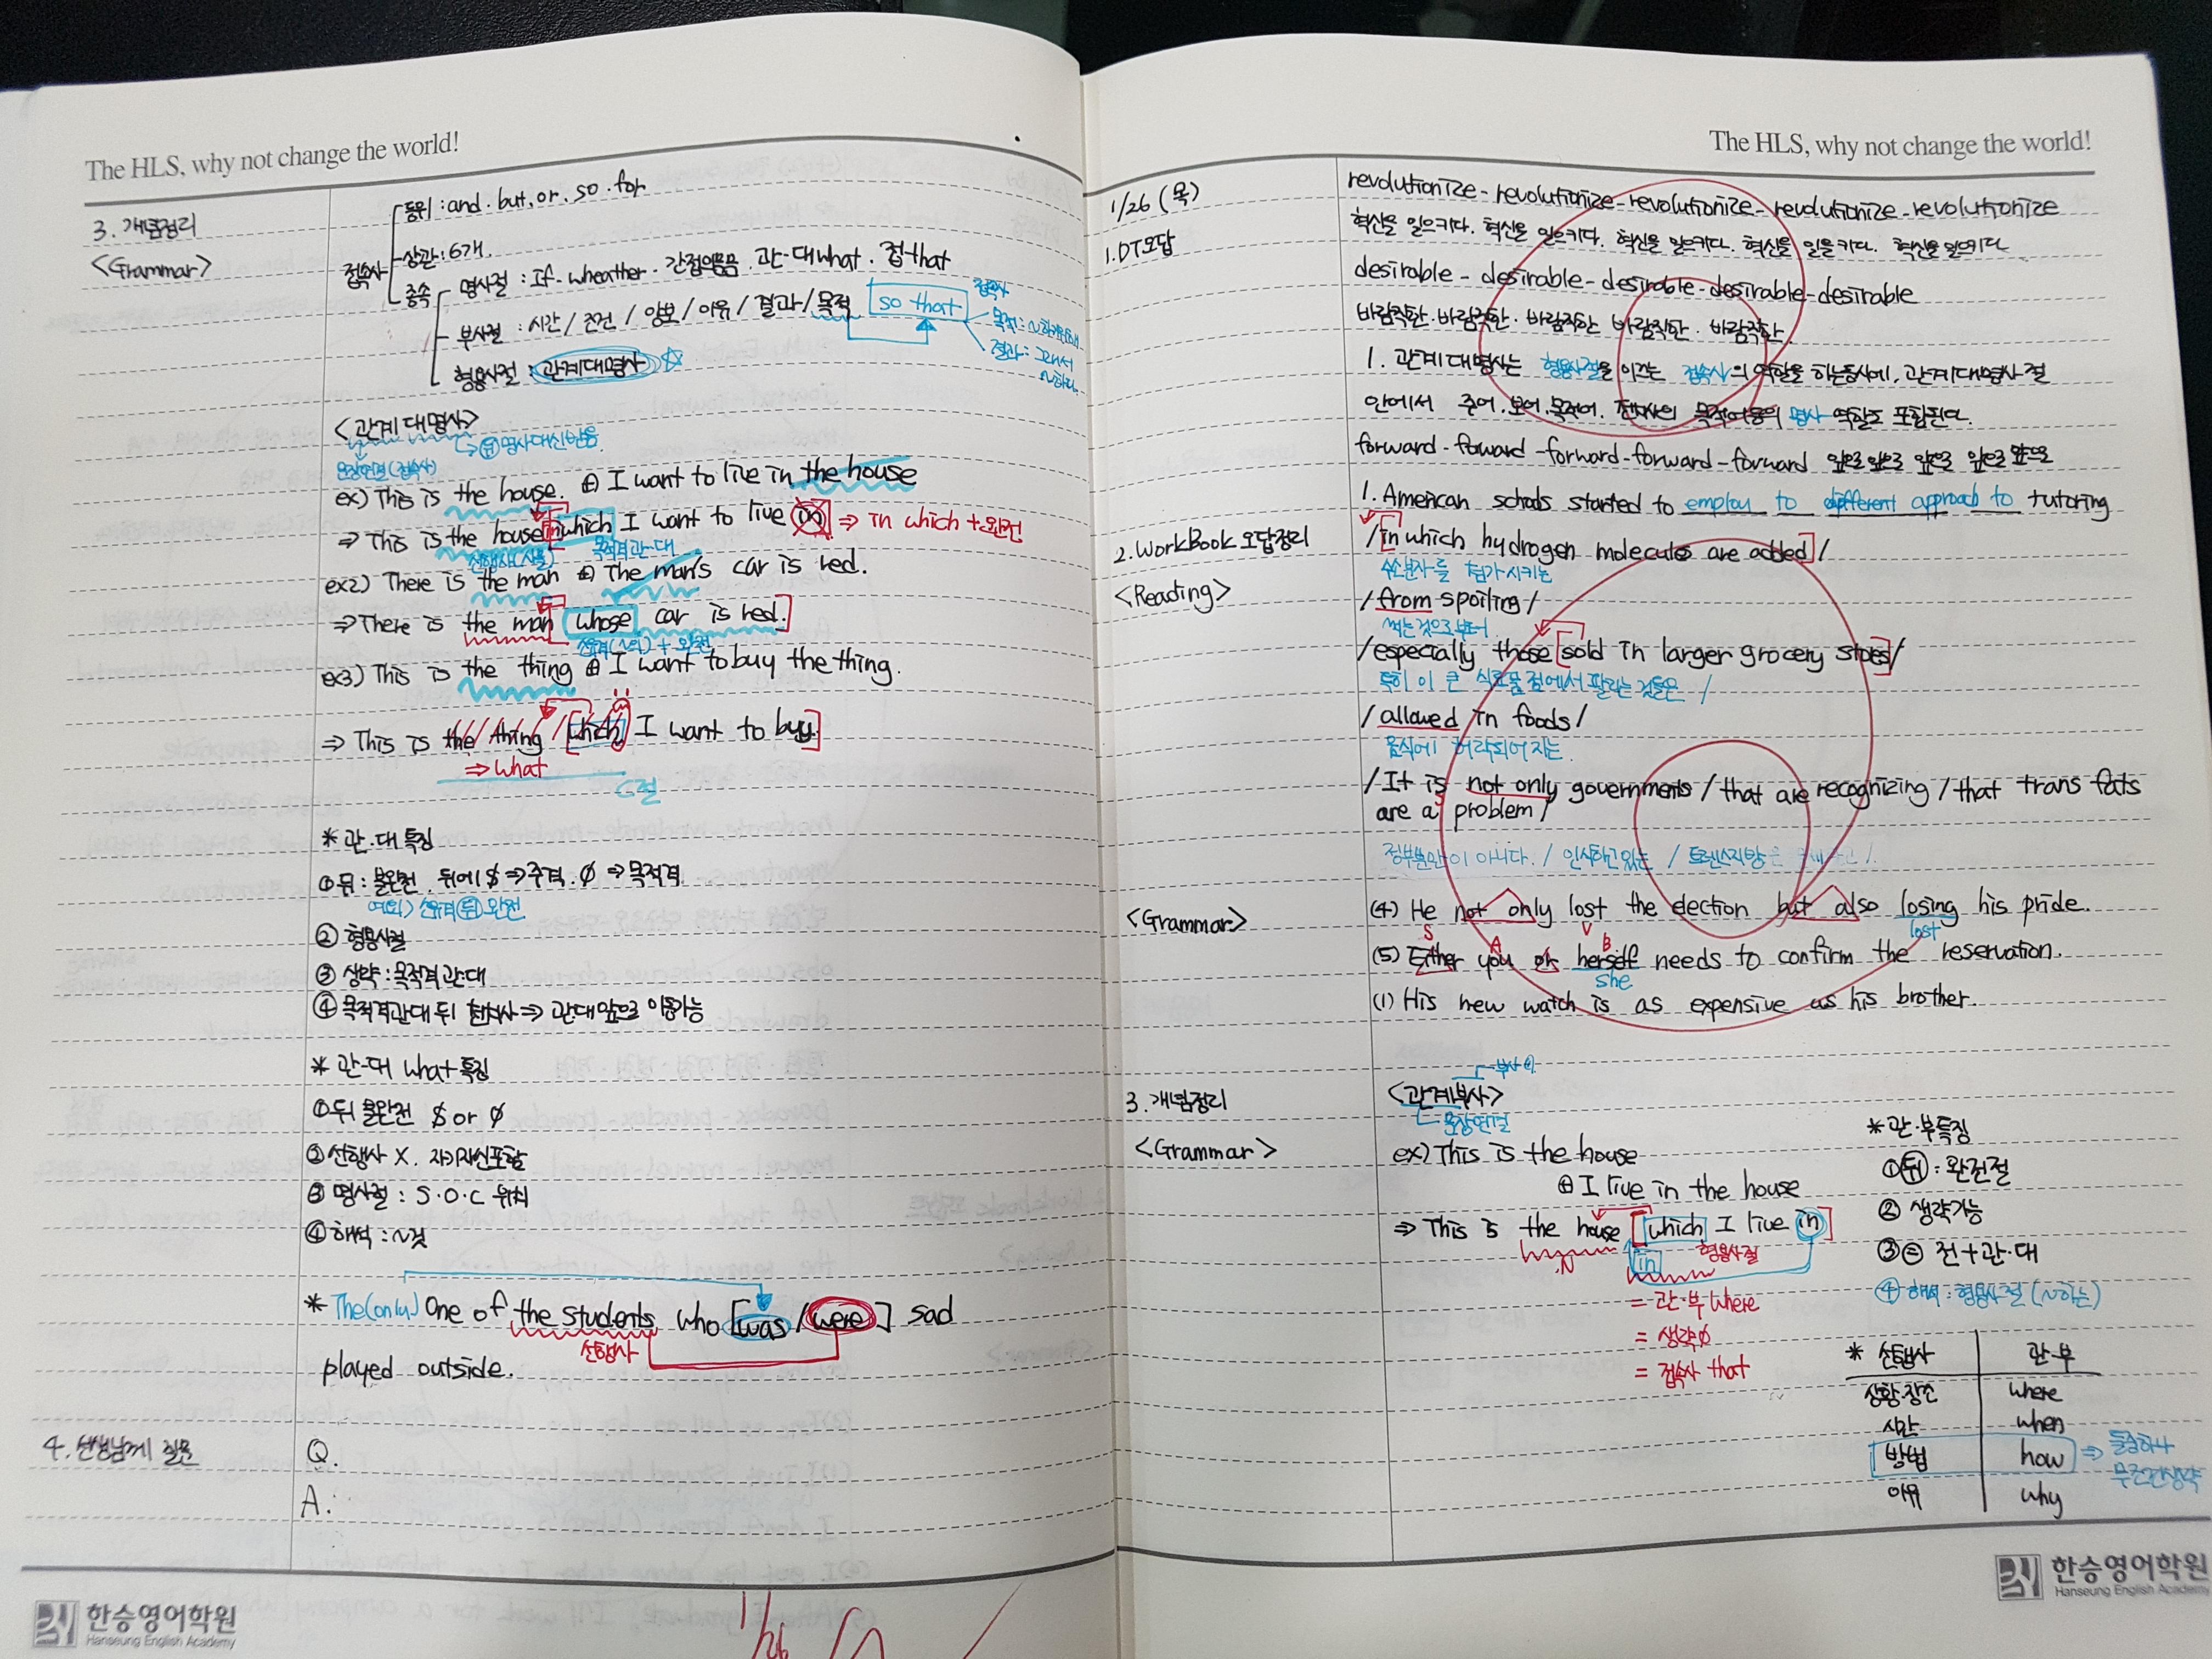 The HLS, why not change the world!
3. 개념정리
<Grammar>
접속사
등위 : and. but, or. so. for
상관 : 6개.
종속
명사절 : If. wheather. 간접의문문. 관·대 what. 접 that
부사절 : 시간 / 조건 / 양보 / 이유 / 결과 / 목적
so that
접속사
결과 : 그래서
~하다.
형용사절 : 관계대명사 ☆
<관계대명사>
문장연결(접속사)
→ 뒤 명사대신받음
ex) This is the house. ⊕ I want to live in the house
⇒ This is the house in which I want to live in ⇒ in which + 완전
선행사(사물)
목적격관·대
ex2) There is the man ⊕ The man's car is red.
⇒ There is the man whose car is red.
소유격(~의) + 완전
ex3) This is the thing ⊕ I want to buy the thing.
⇒ This is the thing which I want to buy
⇒ what
C절
* 관·대 특징
① 뒤 : 불완전. 뒤에 $ ⇒ 주격. ∅ ⇒ 목적격
예외) 소유격 뒤 완전
② 형용사절
③ 생략 : 목적격관·대
④ 목적격관대 뒤 전치사 ⇒ 관대앞으로 이동가능
* 관·대 what 특징
① 뒤 불완전 $ or ∅
② 선행사 X. 자기자신포함
③ 명사절 : S·O·C 위치
④ 해석 : ~것
* The(only) One of the students who [was / were] sad
선행사
played outside.
4. 선생님께 질문
Q.
A.
한승영어학원
Hanseung English Academy
1/26
The HLS, why not change the world!
1/26 (목)
1. DT오답
revolutionize - revolutionize - revolutionize - revolutionize - revolutionize
혁신을 일으키다. 혁신을 일으키다. 혁신을 일으키다. 혁신을 일으키다. 혁신을 일으키다
desirable - desirable - desirable - desirable - desirable
바람직한. 바람직한. 바람직한 바람직한. 바람직한.
1. 관계대명사는 형용사절을 이끄는 접속사의 역할을 하는동시에, 관계대명사절
안에서 주어. 보어. 목적어. 전치사의 목적어등의 명사 역할도 포함된다.
forward - foward - forward - forward - forward 앞으로 앞으로 앞으로 앞으로 앞으로
1. American schools started to employ to different approach to tutoring
2. WorkBook 오답정리
<Reading>
/ in which hydrogen molecules are added /
수소분자를 첨가시키는
/ from spoiling /
썩는것으로부터
/ especially those sold in larger grocery stores /
특히 이 큰 식료품점에서 팔리는 것들은 /
/ allowed in foods /
음식에 허락되어지는
/ It is not only governments / that are recognizing / that trans fats
are a problem /
정부뿐만이 아니다. / 인식하고있는 / 트랜스지방은
<Grammar>
(4) He not only lost the election but also losing his pride.
S V lost
(5) Either you or herself needs to confirm the reservation.
A B she
(1) His new watch is as expensive as his brother.
3. 개념정리
<Grammar>
<관계부사>
문장연결
ex) This is the house
⊕ I live in the house
⇒ This is the house which I live in
N
in
형용사절
= 관·부 where
= 생략∅
= 접속사 that
* 관·부특징
① 뒤 : 완전절
② 생략가능
③ = 전+관·대
④ 해석 : 형용사절 (~하는)
* 선행사 관·부
상황·장소 where
시간 when
방법 how ⇒ 둘중하나
무조건생략
이유 why
한승영어학원
Hanseung English Academy